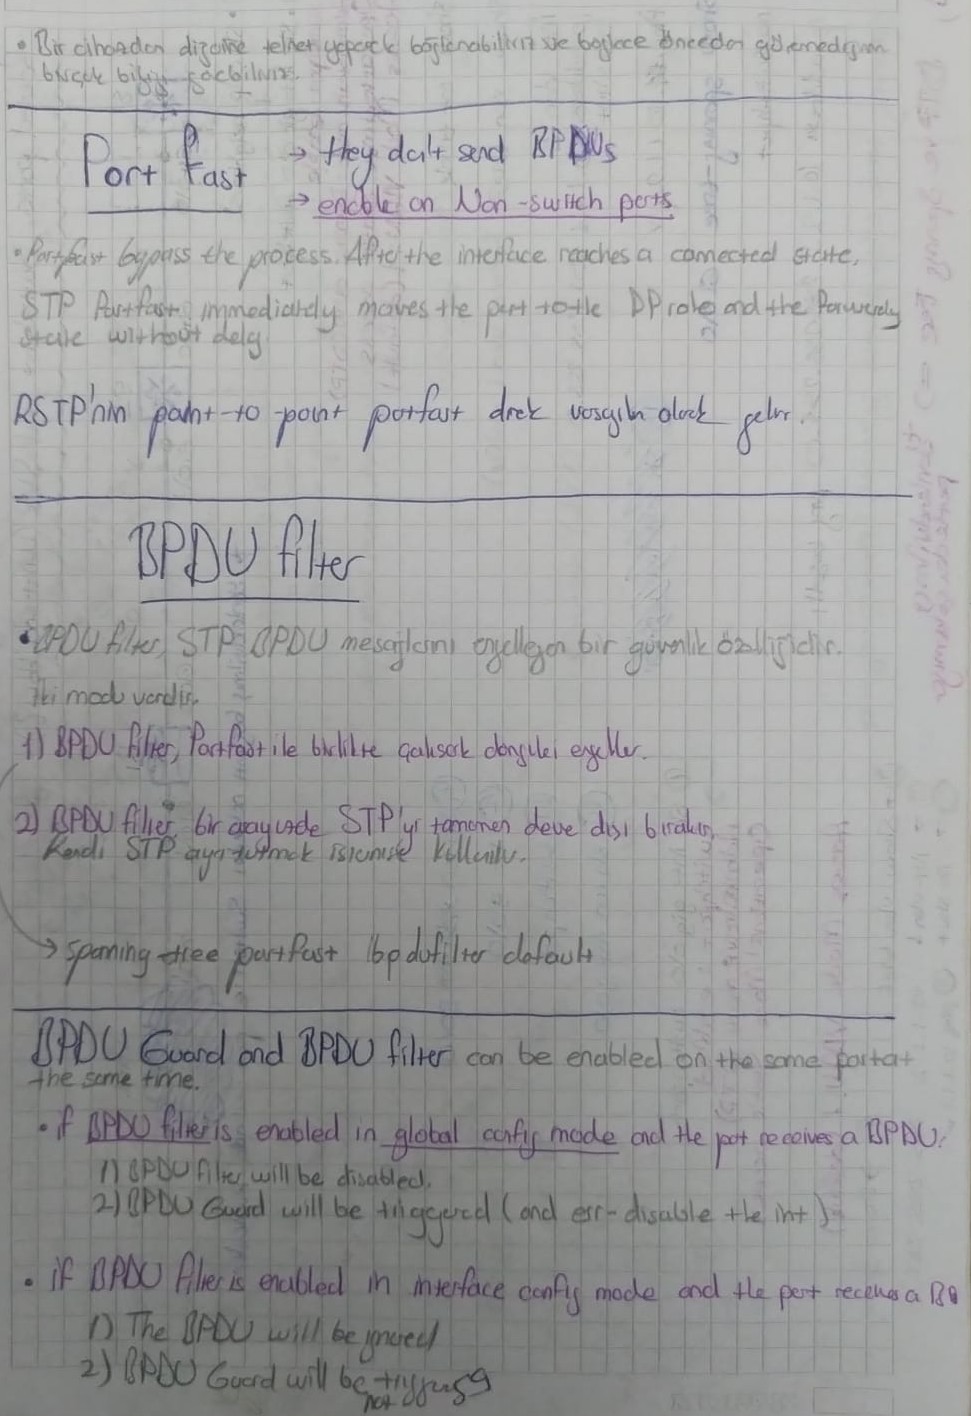 • Bir cihazdan diğerine telnet yaparak bağlanabiliriz ve böylece önceden göremediğimiz
birçok bilgiyi görebiliriz.
Port Fast → they don't send BPDUs
→ enable on Non-switch ports
• Portfast bypass the process. After the interface reaches a connected state,
STP Portfast immediately moves the port to the DP role and the Forwarding
state without delay
RSTP'nin point-to-point portfast direk olarak gelir.
BPDU filter
• BPDU filter, STP BPDU mesajlarını engelleyen bir güvenlik özelliğidir.
İki modu vardır.
1) BPDU filter, Portfast ile birlikte çalışarak döngüleri engeller.
2) BPDU filter, bir arayüzde STP'yi tamamen devre dışı bırakır,
Kendi STP kullanılır.
→ spanning-tree portfast bpdufilter default
BPDU Guard and BPDU filter can be enabled on the same port at
the same time.
• if BPDU filter is enabled in global config mode and the port receives a BPDU:
1) BPDU filter will be disabled.
2) BPDU Guard will be triggered (and err-disable the int)
• if BPDU filter is enabled in interface config mode and the port receives a
1) The BPDU will be ignored
2) BPDU Guard will be not